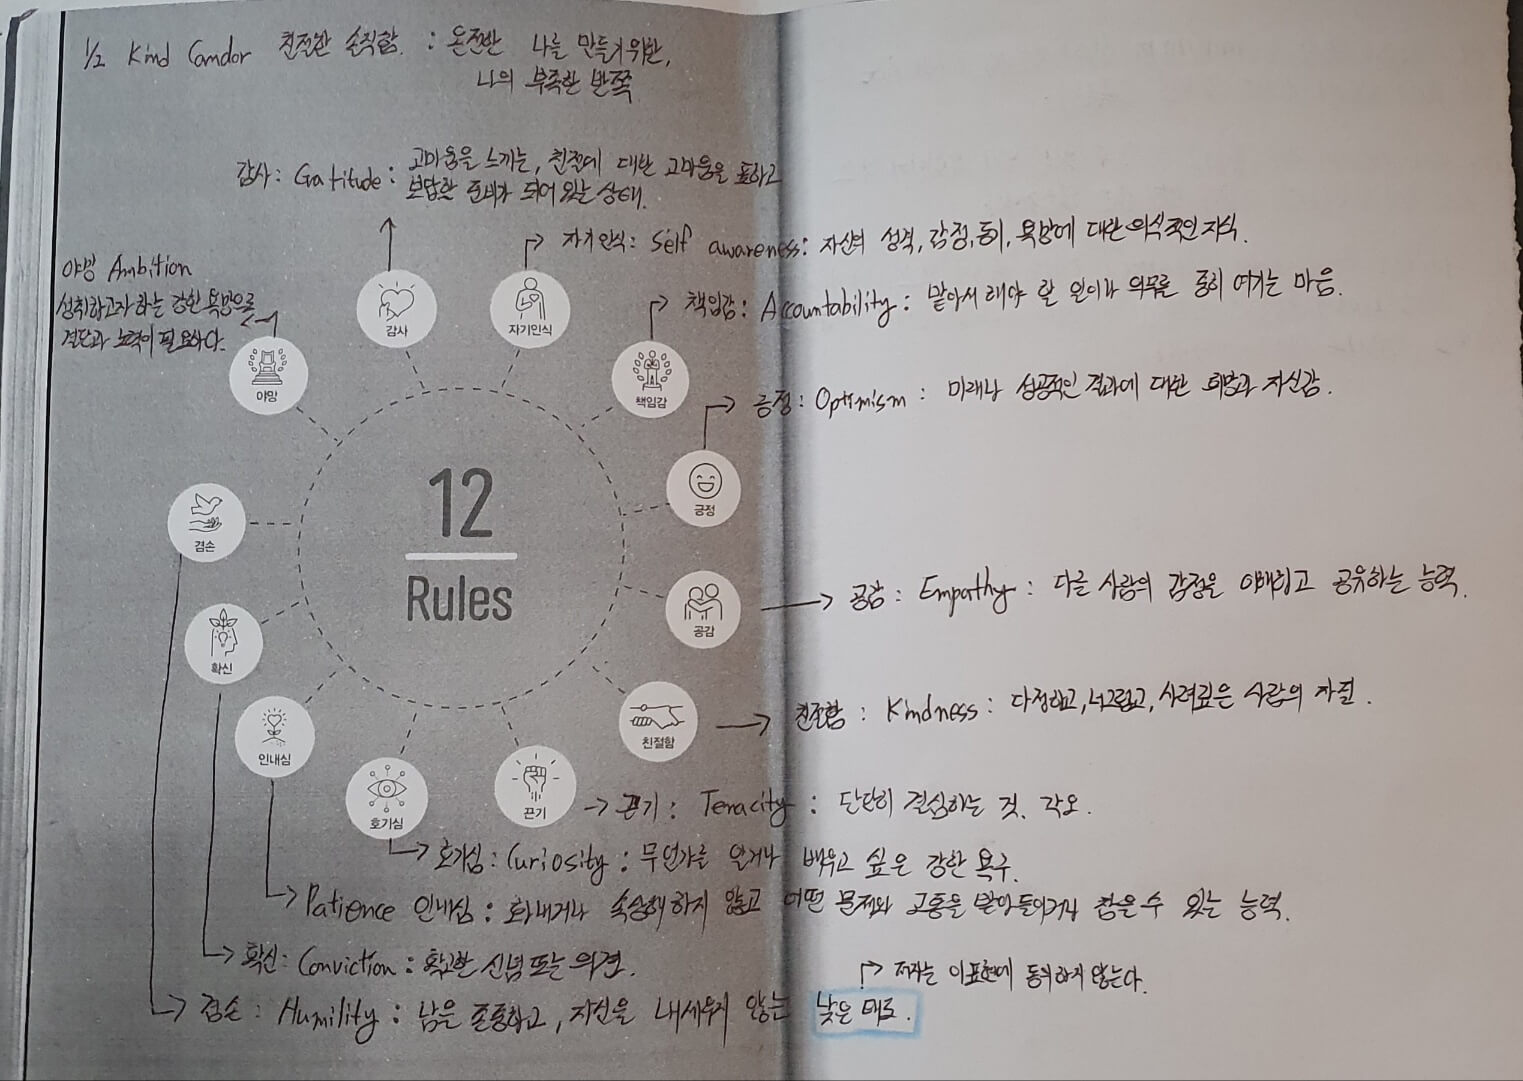 1/2 Kind Candor 친절한 솔직함. : 온전한 나를 만들기위한,
나의 부족한 반쪽
감사: Gratitude: 고마움을 느끼는, 친절에 대한 고마움을 표하고
보답할 준비가 되어 있는 상태.
자기인식: Self awareness: 자신의 성격, 감정, 동기, 욕망에 대한 의식적인 지식.
야망 Ambition
성취하고자 하는 강한 욕망으로
결단과 노력이 필요하다.
책임감: Accountability: 맡아서 해야 할 일이나 의무를 중히 여기는 마음.
긍정: Optimism: 미래나 성공적인 결과에 대한 희망과 자신감.
감사
자기인식
야망
책임감
긍정
12
Rules
겸손
공감
공감: Empathy: 다른 사람의 감정을 이해하고 공유하는 능력.
확신
친절함
친절함: Kindness: 다정하고, 너그럽고, 사려깊은 사람의 자질.
인내심
호기심
끈기
끈기: Tenacity: 단단히 결심하는 것. 각오.
호기심: Curiosity: 무언가를 알거나 배우고 싶은 강한 욕구.
Patience 인내심: 화내거나 속상해 하지 않고 어떤 문제와 고통을 받아들이거나 참을 수 있는 능력.
확신: Conviction: 확고한 신념 또는 의견.
저자는 이표현에 동의하지 않는다.
겸손: Humility: 남을 존중하고, 자신을 내세우지 않는 낮은 태도.